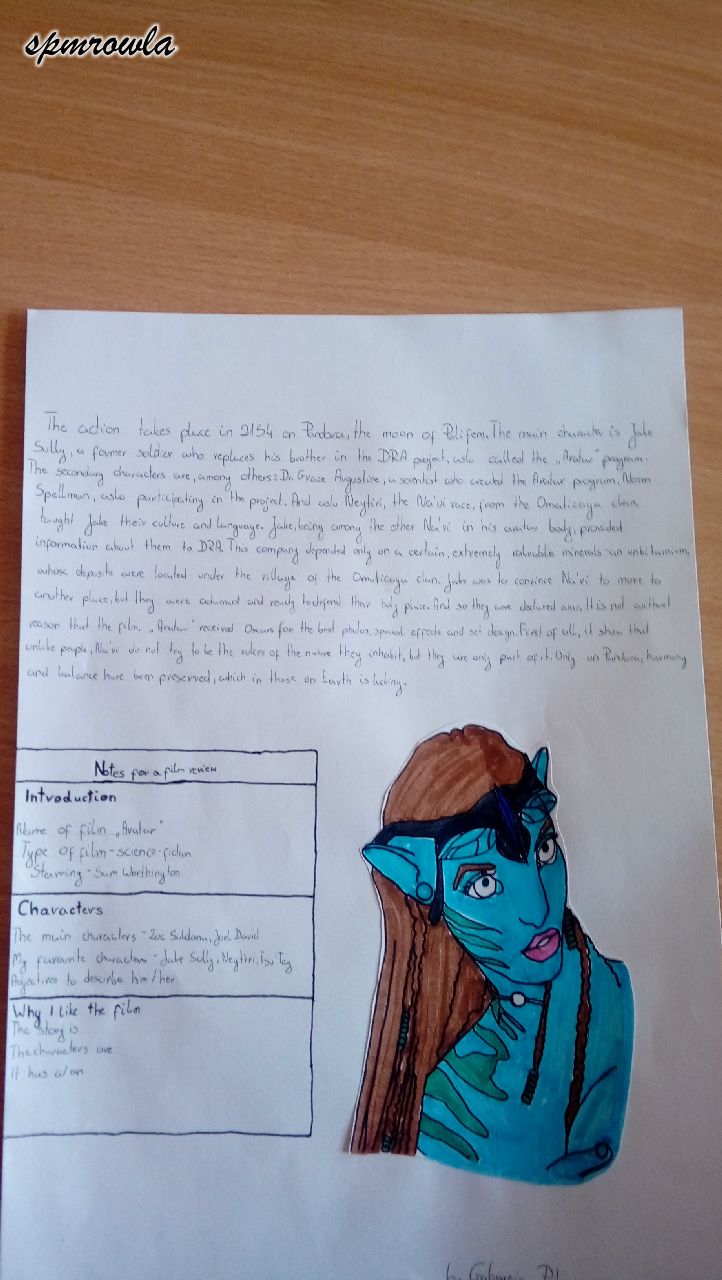 spmrowla
The action takes place in 2154 on Pandora, the moon of Polifem. The main character is Jake
Sully, a former soldier who replaces his brother in the DRA project, aslo called the „Avatar" program.
The secondary characters are, among others: Dr. Grace Augustine, a scientist who created the Avatar program, Norm
Spellman, aslo participating in the project. And aslo Neytiri, the Na'vi race, from the Omaticaya clan,
taught Jake their culture and language. Jake, being among the other Na'vi in his avatar body, provided
information about them to DRA. This company depended only on a certain, extremely valuable minerals - an unbitarnium,
whose deposits were located under the village of the Omaticaya clan. Jake was to convince Na'vi to move to
another place, but they were adamant and ready to defend their holy place. And so they were declared war. It is not without
reason that the film „Avatar" received Oscars for the best photos, special effects and set design. First of all, it show that
unlike people, Na'vi do not try to be the rulers of the nature they inhabit, but they are only part of it. Only on Pandora, harmony
and balance have been preserved, which in those on Earth is lacking.
Notes for a film review
Introduction
Name of film „Avatar"
Type of film - science-fiction
Starring - Sam Worthington
Characters
The main characters - Zoe Saldana, Joel David
My favourite characters - Jake Sully, Neytiri,
Adjectives to describe him/her
Why I like the film
The story is
The characters are
It has a/an
by